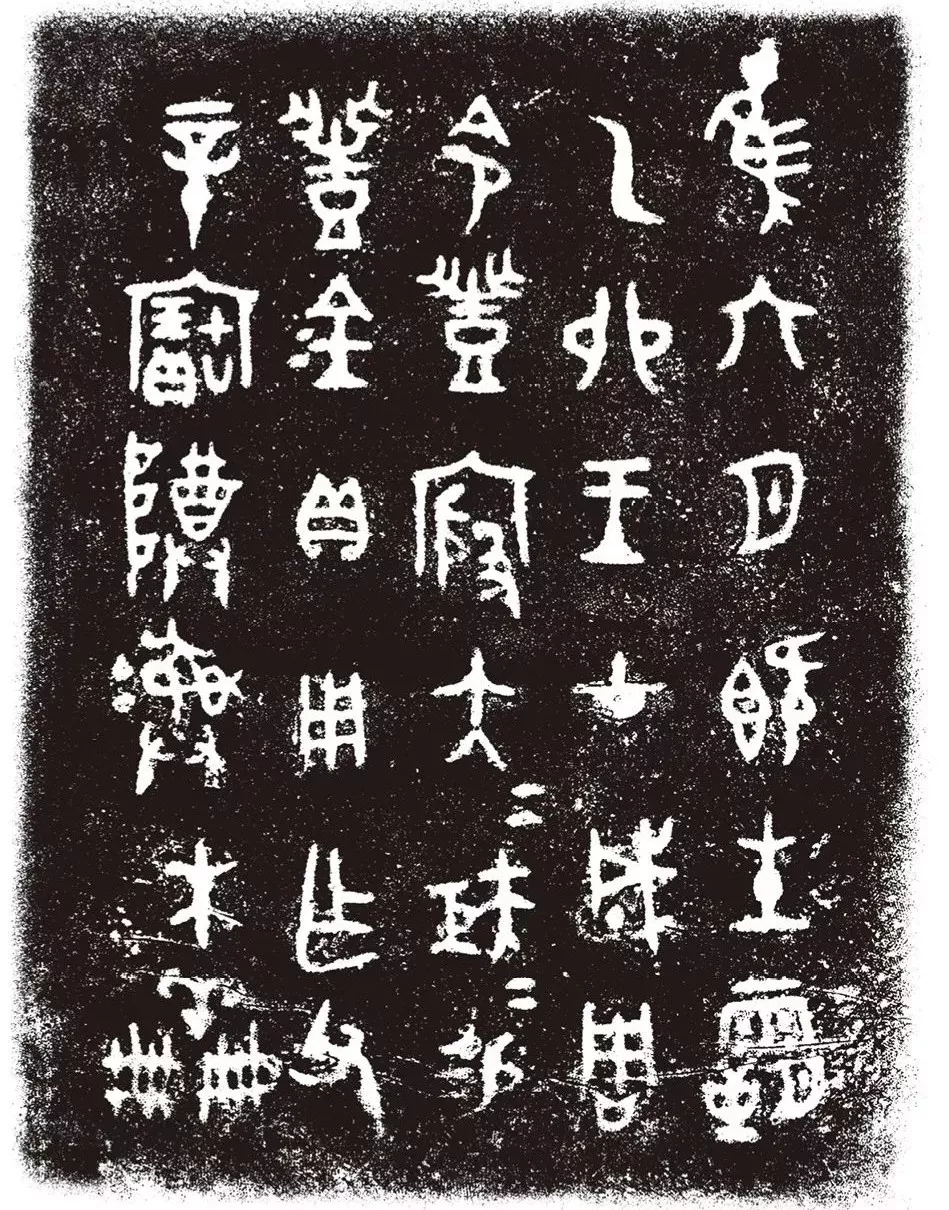 隹六月既生霸
乙卯王才成周
令豐殷大=矩=易
豐金貝用乍父
辛寶𬯚彝木羊冊冊